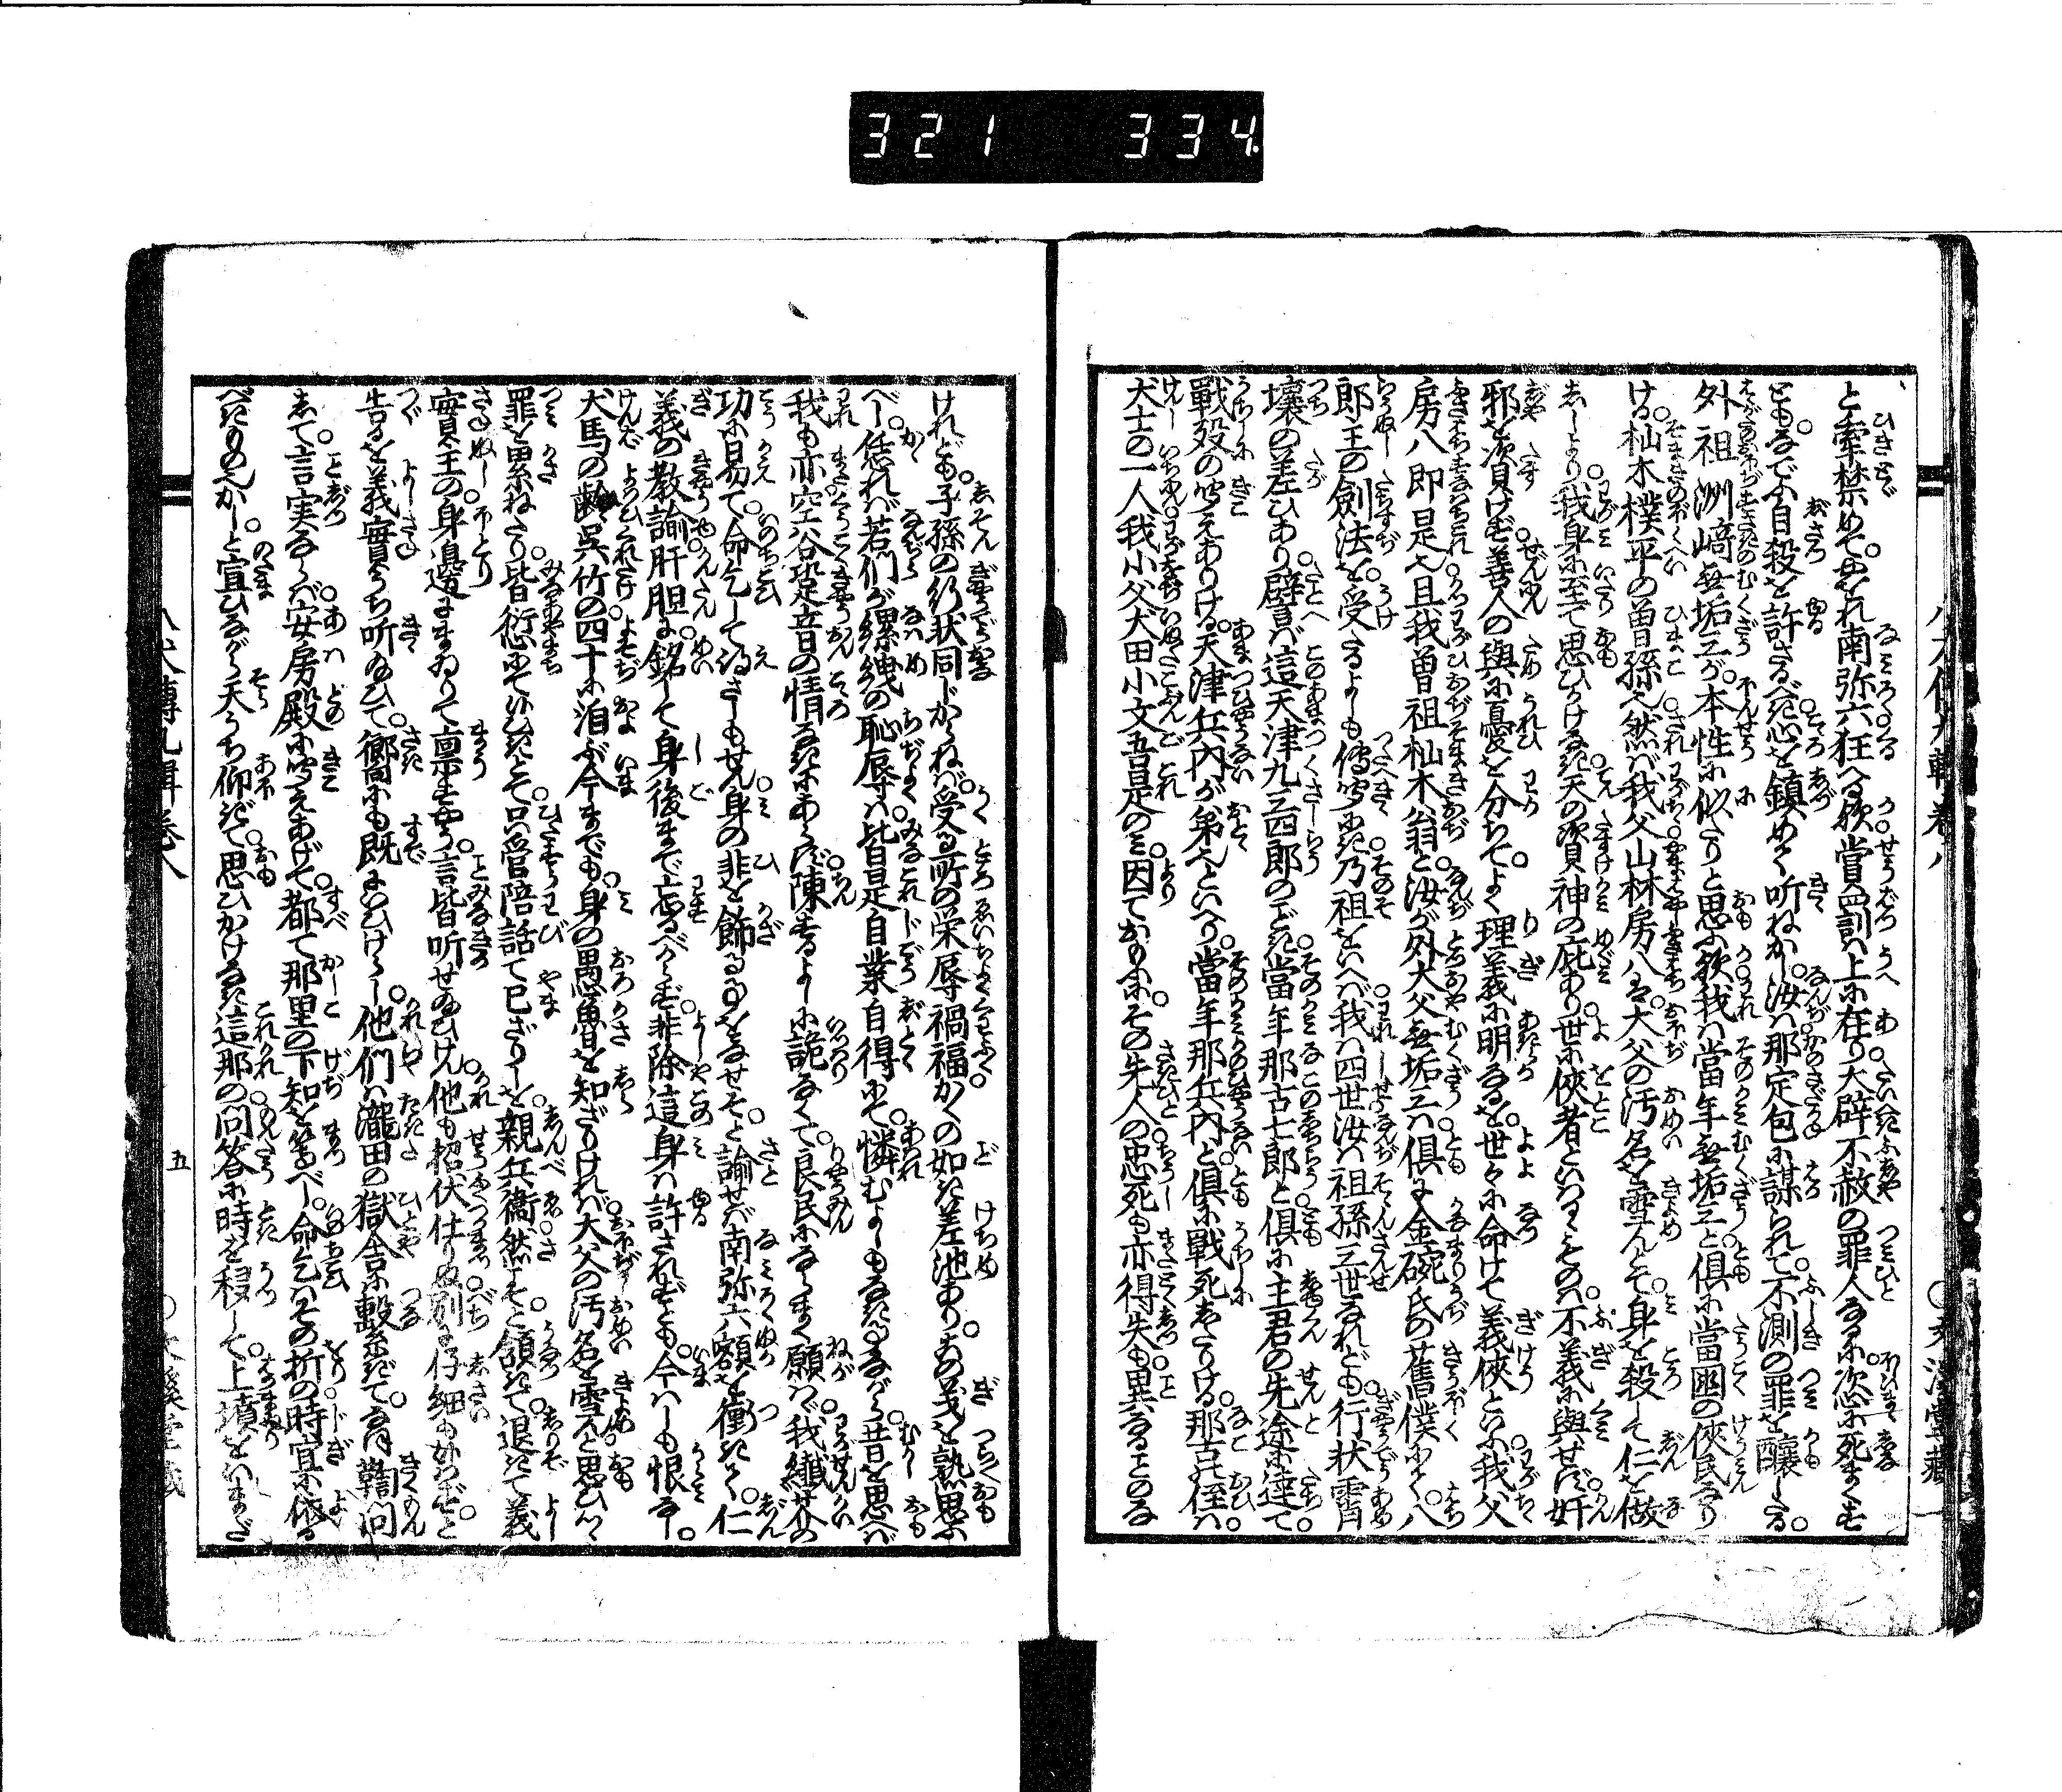 321 334
と牽禁めて。やをれ南弥六狂へる歟。賞罰は上に在り。大辟不赦の罪人なるに。恣に死まくす
とも。なでふ自殺を許さるべき。心を鎮めて听ねかし。汝は那定包に謀られて。不測の罪を醸したる。
外祖洲﨑無垢三が。本性に似たりと思ふ歟。我は當年無垢三と。倶に當国の俠民なり
ける。杣木樸平の曽孫也。然ば我父山林房八は。大父の汚名を雪んとて。身を殺して仁を做
しゝより。我身に至て思ひかけなき。天の資神の庇あり。世に俠者といはるゝものは。不義に與せず。奸
邪を資けず。善人の與に憂を分ちて。よく理義に明なるを。世々に命けて義俠といふ。我父
房八即是也。且我曽祖杣木翁と。汝が外大父無垢三は。倶に金碗氏の舊僕にて。八
郎主の劍法を。受たるよしも傳聞にき。乃祖をいへば我は四世。汝は祖孫三世なれども。行状霄
壤の差ひあり。譬ば這天津九三四郎のごとき。當年那古七郎と倶に。主君の先途に達て。
戰歿の聞えありける。天津兵内が弟也といへり。當年那兵内と。倶に戰死したりける。那古氏の侄は。
犬士の一人我小父。犬田小文吾是のミ。因ておもふに。その先人の忠死も亦得失も。異なることのな
八犬傳九輯卷八
文溪堂藏
けれども。子孫の行状同じからねば。受る所の栄辱禍福。かくの如き差池あり。この義を熟思ふ
べし。恁れば若們が縲絏の恥辱は。皆是自業自得にて。憐むよしもなきものながら。昔を思へば
我も亦。空谷跫音の情なきにあらず。陳ずるよしに詭なくて。良民にならまく願はゞ。我繊芥の
功に易て。命乞して得させん。身の非を飾ることをなせそ。と諭せば南弥六額を衝きて。仁
義の教諭肝胆に銘じて。身後まで忘るべからず。非除這身は許されずとも。今はしも恨なし。
犬馬の齢呉竹の。四十に泊ぶ今までも。身の愚魯を知ざりければ。大父の汚名を雪んと思ひしは
罪を累ねたり。皆愆にていひにきとて。只管陪話て已ざりしを。親兵衞然こそと頷きて。退きて義
實主の身邊にまゐりて稟すやう。言皆听せ給ひけん。他も招伏仕りぬ。別に仔細も候はず。と
告るを義實うち听給ひて。嚮にも既にいひけらし。他們は瀧田の獄舎に繋ぎて。鞫問
して。言実ならば安房殿に聞えあげて。都て那里の下知を等べし。命乞はその折の。時宜に依る
べきものぞかし。と宣ひながら天うち仰ぎて。思ひかけなき這那の。問答に時を移して。上墳をいまだ
八犬傳九輯卷八
五
文溪堂藏